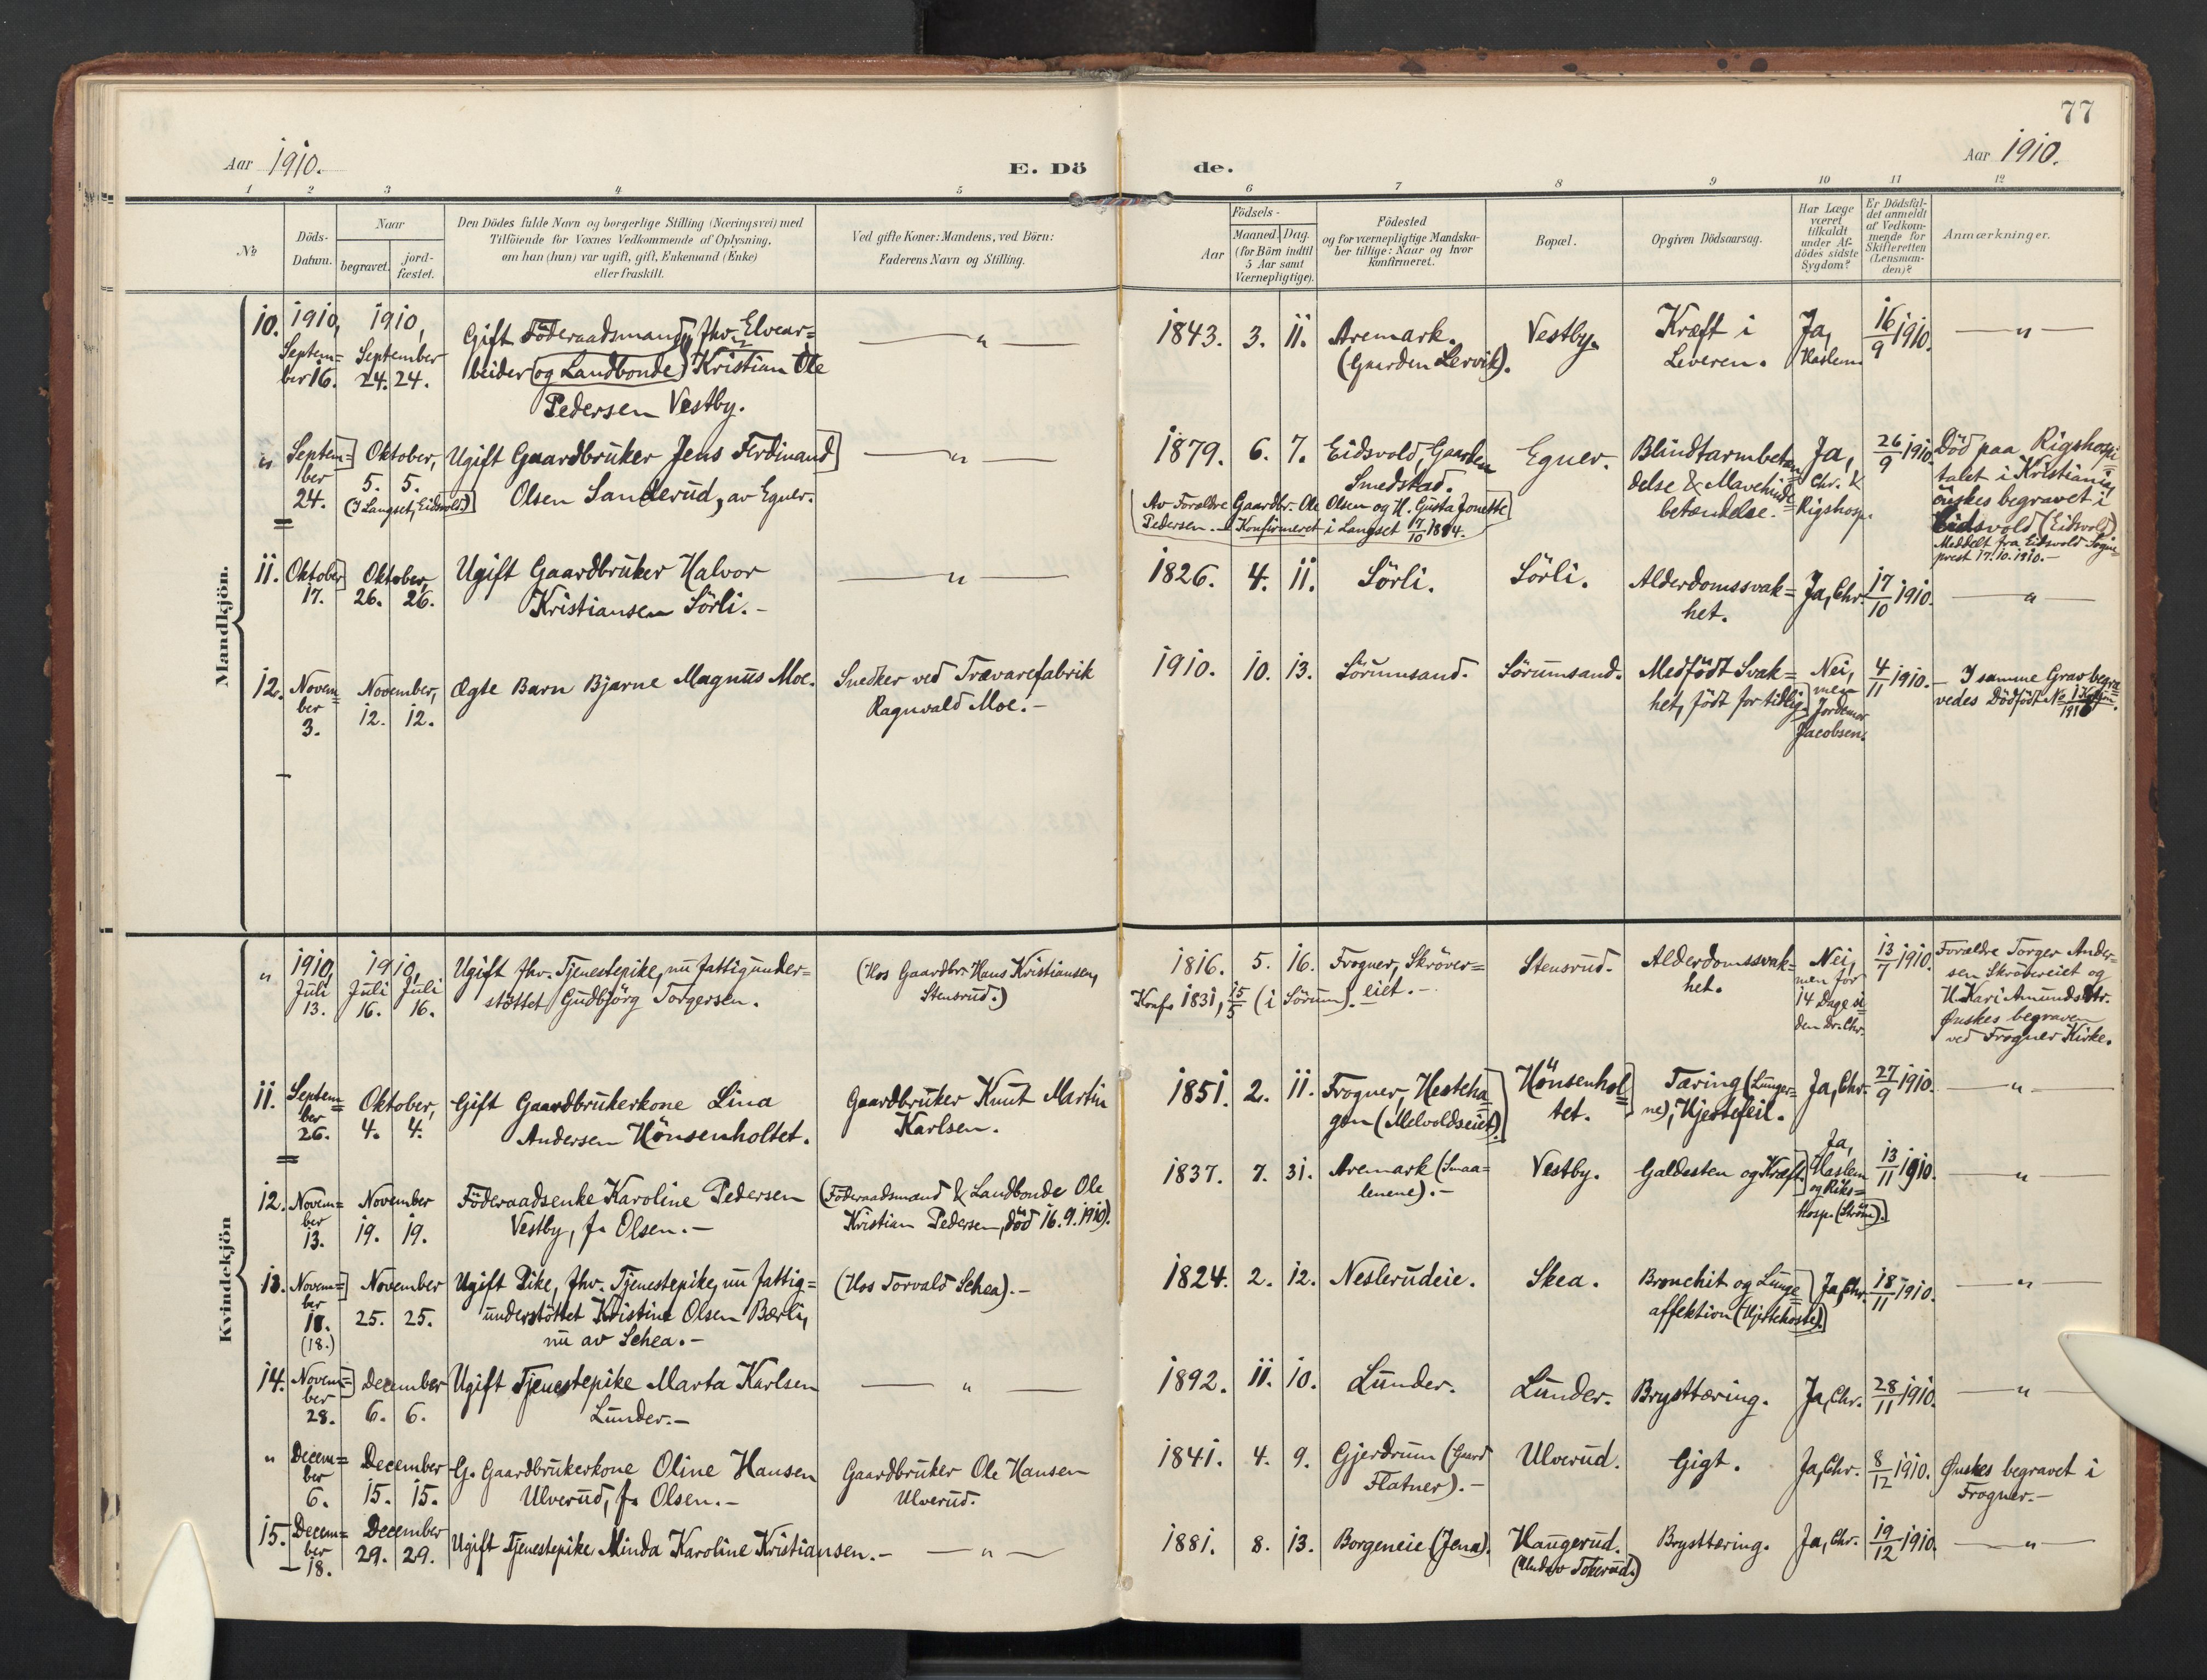 77
Aar 1910.
E. Dö de.
Aar 1910.
1 2 3 4 5 6 7 8 9 10 11 12
No
Döds-
Datum.
Naar
begravet.
jord-
fæstet.
Den Dödes fulde Navn og borgerlige Stilling (Næringsvei) med
Tilföiende for Voxnes Vedkommende af Oplysning,
om han (hun) var ugift, gift, Enkemand (Enke)
eller fraskilt.
Ved gifte Koner: Mandens, ved Börn:
Faderens Navn og Stilling.
Födsels-
Aar
Maaned. Dag.
(for Börn indtil
5 Aar samt
Værnepligtige).
Födested
og for værnepligtige Mandska-
ber tillige: Naar og hvor
konfirmeret.
Bopæl.
Opgiven Dödsaarsag.
Har Læge
været
tilkaldt
under Af-
dödes sidste
Sygdom?
Er Dödsfal-
det anmeldt
af Vedkom-
mende for
Skifteretten
(Lensman-
den)?
Anmærkninger.
Mandkjön.
10.
1910,
Septem=
ber 16.
1910,
September
24. 24.
Gift Föderaadsmand, fhv. Elvear=
beider (og Landbonde) Kristian Ole
Pedersen Vestby.
— " —
1843. 3. 11.
Aremark.
(Gaarden Lervik).
Vestby.
Kræft i
Leveren.
Ja,
Haslem
16/9 1910.
— " —
"
Septem=
ber
24.
Oktober,
5. 5.
(I Langset, Eidsvold.)
Ugift Gaardbruker Jens Ferdinand
Olsen Sanderud, av Egner.
— " —
1879. 6. 7.
Eidsvold, Gaarden
Smedstad.
Av Forældre Gaardbr. Ole Olsen og H. Gusta Jonette
Pedersen. – Konfirmeret i Langset 17/10 1894.
Egner.
Blindtarmbetæn
delse & Mavehinde
betændelse.
Ja,
Chr. &
Rigshosp.
26/9 1910.
Död paa Rigshospi=
talet i Kristiania,
önskes begravet i
Eidsvold (Eidsvold)
Meddelt fra Eidsvold Sogne
prest 17.10.1910.–
11.
Oktober
17.
Oktober,
26. 26.
Ugift Gaardbruker Halvor
Kristiansen Sörli.–
— " —
1826. 4. 11.
Sörli.
Sörli.
Alderdomssvak=
het.
Ja, Chr.
17/10 1910.
— " —
12.
Novem=
ber
3.
November,
12. 12.
Ægte Barn Bjarne Magnus Moe.
Snedker ved Trævarefabrik
Ragnvald Moe.–
1910. 10. 13.
Sörumsand.
Sörumsand.
Medfödt Svak=
het, födt for tidlig.
Nei,
men
Jordemor
Jacobsen.
4/11 1910.
– I samme Grav begra=
vedes Dödfödt No 1
1910.
Kvindekjön
"
1910,
Juli
13.
1910,
Juli Juli
16. 16.
Ugift fhv. Tjenestepike, nu fattigunder=
stöttet Gudbjörg Torgersen.
(Hos Gaardbr. Hans Kristiansen,
Stensrud.)
1816. 5. 16.
Frogner, Skröver=
eiet.–
Konf. 1831, 15/5 (i Sörum).
Stensrud.
Alderdomssvak=
het.
Nei,
men for
14 Dage si
den Dr. Chr.
13/7 1910.
Forældre Torger Ander=
sen Skrövereiet og
H. Kari Amundsdtr.
Ønskes begraven
ved Frogner Kirke.
11.
Septem=
ber
26.
Oktober,
4. 4.
Gift Gaardbrukerkone Lina
Andersen Hönsenholtet.
Gaardbruker Knut Martin
Karlsen.
1851. 2. 11.
Frogner, Hesteha=
gen (Melvoldseiet).
Hönsenhol=
tet.
Tæring (Lunger-
ne), Hjertefeil.
Ja, Chr.
27/9 1910.
— " —
12.
Novem=
ber
13.
November
19. 19.
Föderaadsenke Karoline Pedersen
Vestby, f. Olsen.–
(Föderaadsmand & Landbonde Ole
Kristian Pedersen, död 16.9.1910).
1837. 7. 31.
Aremark (Smaa=
lenene).–
Vestby.
Galdesten og Kræft.
Ja,
Haslem
og Riks=
hosp. (Ström).
13/11 1910.
— " —
13.
Novem=
ber
18.
(18.)
November
25. 25.
Ugift Pike, fhv. Tjenestepike, nu fattig=
understöttet Kristine Olsen Bærli,
nu av Schea.–
(Hos Torvald Schea).–
1824. 2. 12.
Neslerudeie.
Skea.
Bronchit og Lunge=
affektion (Hjertehoste).
Ja, Chr.
18/11 1910.
— " —
14.
Novem=
ber
28.
December
6. 6.
Ugift Tjenestepike Marta Karlsen
Lunder.–
— " —
1892. 11. 10.
Lunder.
Lunder.
Brysttæring.
Ja, Chr.
28/11 1910.
— " —
"
Decem=
ber
6.
December
15. 15.
G. Gaardbrukerkone Oline Hansen
Ulverud, f. Olsen.–
Gaardbruker Ole Hansen
Ulverud.
1841. 4. 9.
Gjerdrum (Gaard
Flatner).–
Ulverud.
Gigt.
Ja, Chr.
8/12 1910.
Ønskes begravet i
Frogner.–
15.
Decem=
ber
18.
December
29. 29.
Ugift Tjenestepike Minda Karoline Kristiansen.–
— " —
1881. 8. 13.
Borgeneie (Jena).
Haugerud.
(Tokerud.)
Brysttæring.
Ja, Chr.
19/12 1910.
— " —